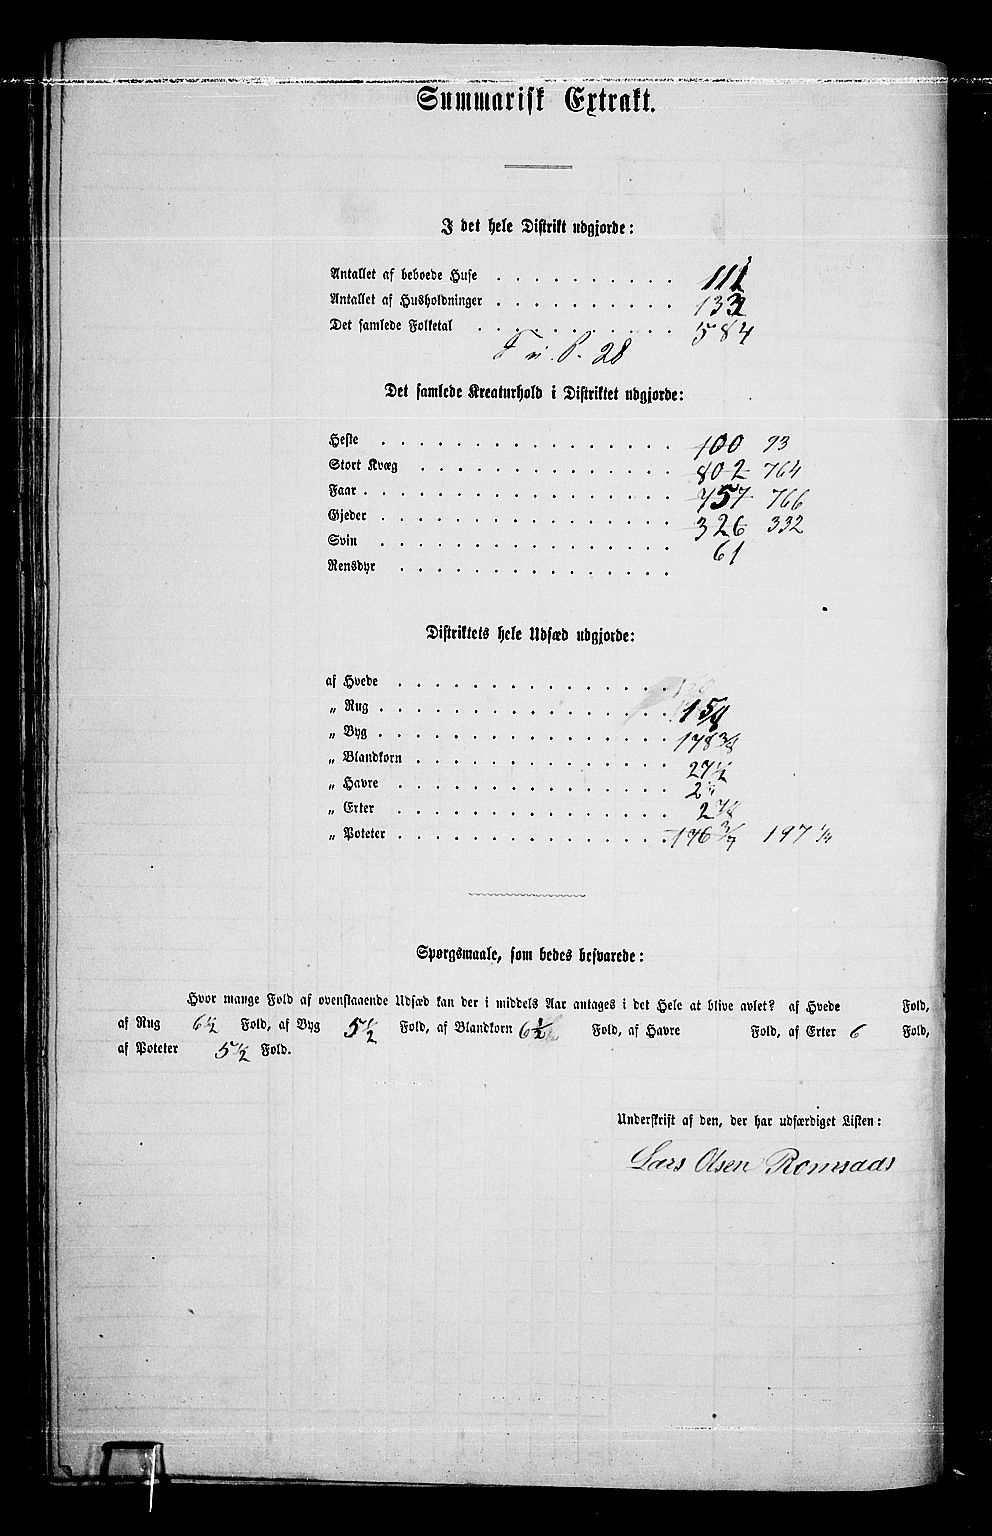 Summarisk Extrakt.
I det hele Distrikt udgjorde:
Antallet af beboede Huse . . . . . . . . . 111
Antallet af Husholdninger . . . . . . . . . 132
Det samlede Folketal . . . . . . . . . . 584
28
Det samlede Kreaturhold i Distriktet udgjorde:
Heste . . . . . . . . . . . . . . . 100 93
Stort Kvæg . . . . . . . . . . . . . 802 764
Faar . . . . . . . . . . . . . . . . 757 766
Gjeder . . . . . . . . . . . . . . . 326 332
Svin . . . . . . . . . . . . . . . 61
Rensdyr . . . . . . . . . . . . . .
Distriktets hele Udsæd udgjorde:
af Hvede . . . . . . . . . . . . . .
„ Rug . . . . . . . . . . . . . . . 1 5/8
„ Byg . . . . . . . . . . . . . . . 178 3/8
„ Blandkorn . . . . . . . . . . . . . 27 1/2
„ Havre . . . . . . . . . . . . . . 2
„ Erter . . . . . . . . . . . . . . 2 7/8
„ Poteter . . . . . . . . . . . . . . 196 3/4 197 1/4
Spørgsmaale, som bedes besvarede:
Hvor mange Fold af ovenstaaende Udsæd kan der i middels Aar antages i det Hele at blive avlet? af Hvede Fold,
af Rug 6 1/2 Fold, af Byg 5 1/2 Fold, af Blandkorn 6 1/2 Fold, af Havre Fold, af Erter 6 Fold,
af Poteter 5 1/2 Fold.
Underskrift af den, der har udfærdiget Listen:
Lars Olsen Romsaas